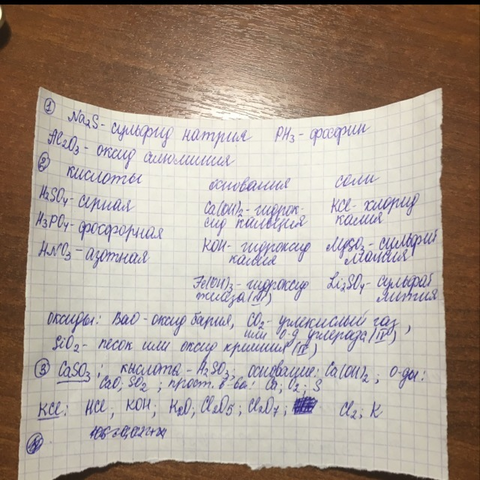 ① Na₂S - сульфид натрия PH₃ - фосфин
Al₂O₃ - оксид алюминия
② кислоты основания соли
H₂SO₄ - серная Ca(OH)₂ - гидрок- KCl - хлорид
сид кальция калия
H₃PO₄ - фосфорная KOH - гидроксид MgSO₃ - сульфит
калия магния
HNO₃ - азотная
Fe(OH)₃ - гидроксид Li₂SO₄ - сульфат
железа (III) лития
оксиды: BaO - оксид бария, CO₂ - углекислый газ,
или о-д углерода (IV)
SiO₂ - песок или оксид кремния (IV)
③ CaSO₃; кислота - H₂SO₃, основание: Ca(OH)₂, о-ды:
CaO; SO₂; прост. в-ва: Ca; O₂; S
KCl: HCl, KOH; H₂O; Cl₂O₅; Cl₂O₇; Cl₂; K